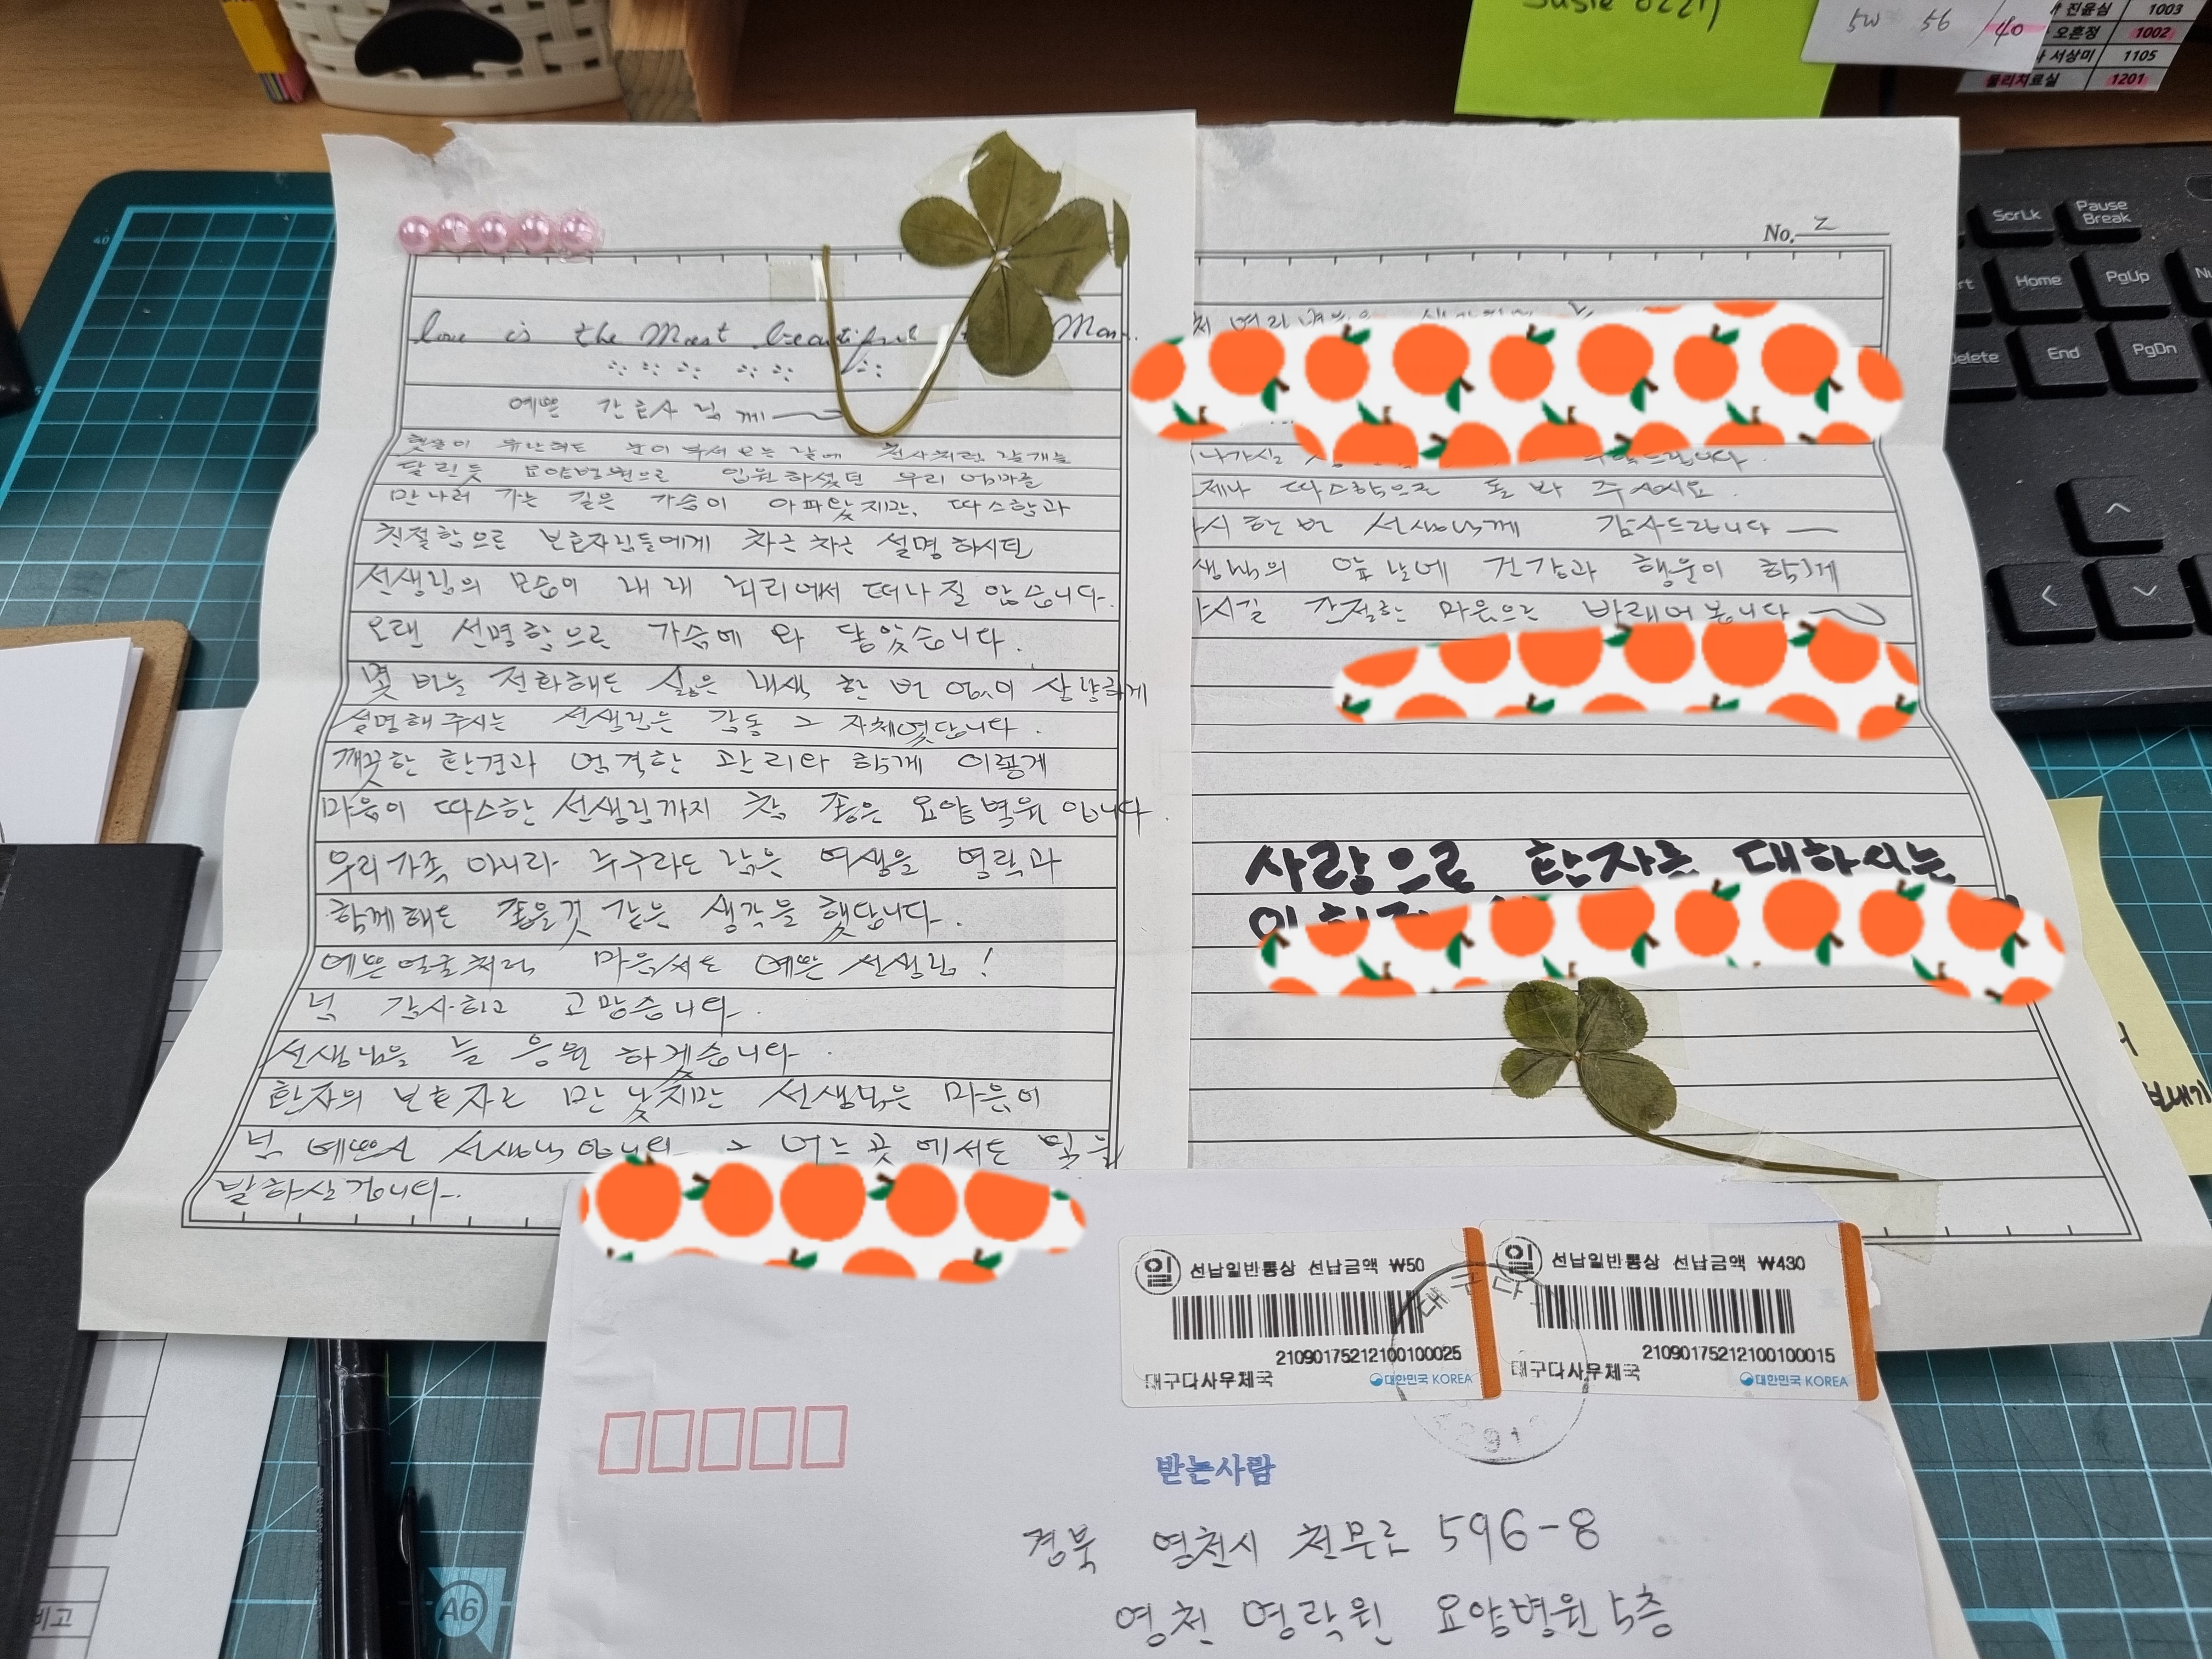 Susie
50 56 40
진윤심 1003
오흔정 1002
서상미 1105
물리치료실 1201
ScrLk
Pause Break
Home
PgUp
Delete
End
PgDn
love is the Most beautiful
예쁜 간호사님께
햇살이 유난히도 눈이 부셔 오는 날에 천사처럼 날개를
달린듯 요양병원으로 입원하셨던 우리
만나러 가는 길은 가슴이 아파왔지만, 따스함과
친절함으로 보호자님들에게 차근차근 설명하시던
선생님의 모습이 내내 뇌리에서 떠나질 않습니다.
오랜 선명함으로 가슴에 와 닿았습니다.
몇 번을 전화해도 싫은 내색 한 번 없이 상냥하게
설명해주시는 선생님은 감동 그 자체였답니다.
깨끗한 환경과 엄격한 관리와 함께 이렇게
마음이 따스한 선생님까지 참 좋은 요양병원 입니다.
우리가족 아니라 누구라도 남은 여생을 영락과
함께해도 좋을것 같은 생각을 했답니다.
예쁜얼굴처럼 마음씨도 예쁜 선생님!
넘 감사하고 고맙습니다.
선생님을 늘 응원 하겠습니다.
환자의 보호자로 만났지만 선생님은 마음이
넘 예쁘신 선생님 입니다 그 어느곳에서도 빛을
발하실겁니다.
No. 2
제나 따스함으로 돌봐 주세요.
시 한번 선생님께 감사드립니다
생님의 앞날에 건강과 행운이 함께
시길 간절한 마음으로 바래어 봅니다
사랑으로 환자를 대하시는
일 선납일반통상 선납금액 ₩50
21090175212100100025
대구다사우체국
대한민국 KOREA
일 선납일반통상 선납금액 ₩430
21090175212100100015
대구다사우체국
대한민국 KOREA
받는사람
경북 영천시 천문로 596-8
영천 영락원 요양병원 5층
A6
비고
보내기